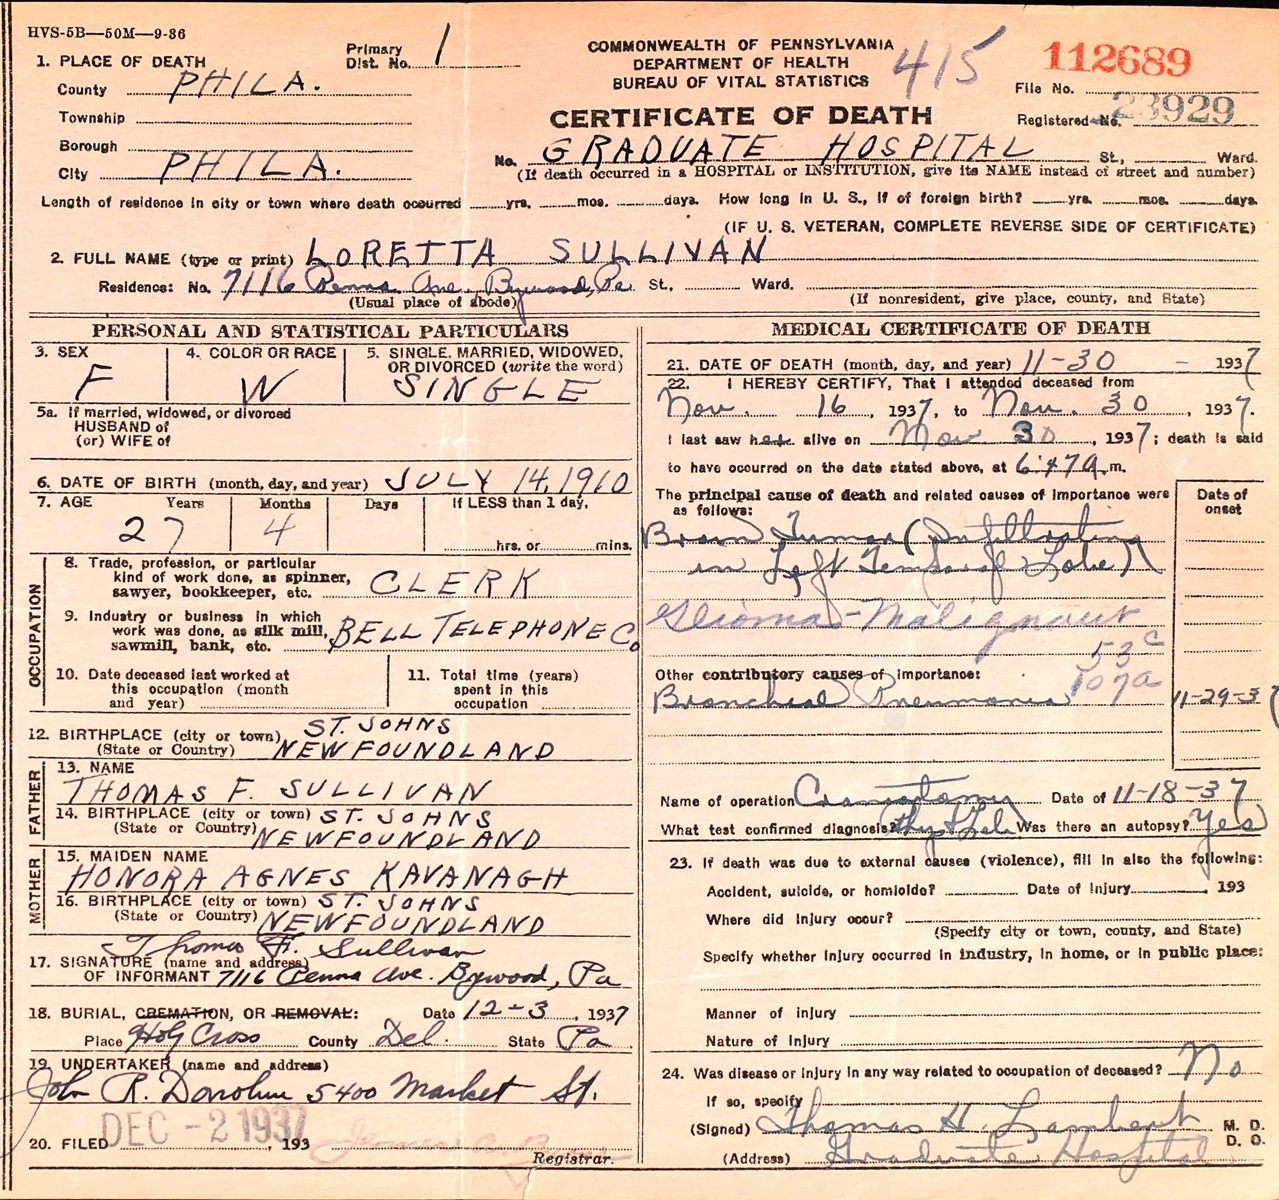 HVS-5B—50M—9-36
COMMONWEALTH OF PENNSYLVANIA
DEPARTMENT OF HEALTH
BUREAU OF VITAL STATISTICS
CERTIFICATE OF DEATH
415
112689
File No.
Registered No. 23929
Primary Dist. No. 1
1. PLACE OF DEATH
County PHILA.
Township
Borough
City PHILA.
No. GRADUATE HOSPITAL St., Ward.
(If death occurred in a HOSPITAL or INSTITUTION, give its NAME instead of street and number)
Length of residence in city or town where death occurred yrs. mos. days. How long in U. S., if of foreign birth? yrs. mos. days.
(IF U. S. VETERAN, COMPLETE REVERSE SIDE OF CERTIFICATE)
2. FULL NAME (type or print) LORETTA SULLIVAN
Residence: No. 7116 Penna. Ave. Bywood, Pa. St., Ward.
(Usual place of abode) (If nonresident, give place, county, and State)
PERSONAL AND STATISTICAL PARTICULARS
3. SEX F
4. COLOR OR RACE W
5. SINGLE, MARRIED, WIDOWED, OR DIVORCED (write the word) SINGLE
5a. If married, widowed, or divorced
HUSBAND of
(or) WIFE of
6. DATE OF BIRTH (month, day, and year) JULY 14, 1910
7. AGE Years Months Days If LESS than 1 day,
27 4 hrs. or mins.
OCCUPATION
8. Trade, profession, or particular
kind of work done, as spinner, CLERK
sawyer, bookkeeper, etc.
9. Industry or business in which
work was done, as silk mill, BELL TELEPHONE Co
sawmill, bank, etc.
10. Date deceased last worked at
this occupation (month
and year)
11. Total time (years)
spent in this
occupation
12. BIRTHPLACE (city or town) ST. JOHNS
(State or Country) NEWFOUNDLAND
FATHER
13. NAME
THOMAS F. SULLIVAN
14. BIRTHPLACE (city or town) ST. JOHNS
(State or Country) NEWFOUNDLAND
MOTHER
15. MAIDEN NAME
HONORA AGNES KAVANAGH
16. BIRTHPLACE (city or town) ST. JOHNS
(State or Country) NEWFOUNDLAND
Thomas F. Sullivan
17. SIGNATURE (name and address)
OF INFORMANT 7116 Penna Ave. Bywood, Pa
18. BURIAL, CREMATION, OR REMOVAL: Date 12-3, 1937
Place Holy Cross County Del. State Pa
19. UNDERTAKER (name and address)
John R. Donohue 5400 Market St.
20. FILED DEC -2 1937, 193
Registrar.
MEDICAL CERTIFICATE OF DEATH
21. DATE OF DEATH (month, day, and year) 11-30 - 1937
22. I HEREBY CERTIFY, That I attended deceased from
Nov. 16, 1937, to Nov. 30, 1937.
I last saw her alive on Nov 30, 1937; death is said
to have occurred on the date stated above, at 6:47 a.m.
The principal cause of death and related causes of importance were
as follows:
Date of onset
Brain Tumor (Infiltrating
in Left Temporal Lobe)
Glioma - Malignant
53 c
Other contributory causes of importance: 107a
Bronchial Pneumonia 11-29-37
Name of operation Craniotomy Date of 11-18-37
What test confirmed diagnosis? Phys & Lab Was there an autopsy? yes
23. If death was due to external causes (violence), fill in also the following:
Accident, suicide, or homicide? Date of injury 193
Where did injury occur?
(Specify city or town, county, and State)
Specify whether injury occurred in industry, in home, or in public place:
Manner of injury
Nature of injury
24. Was disease or injury in any way related to occupation of deceased? No
If so, specify
(Signed) Thomas H. Lambert M. D.
D. O.
(Address) Graduate Hospital